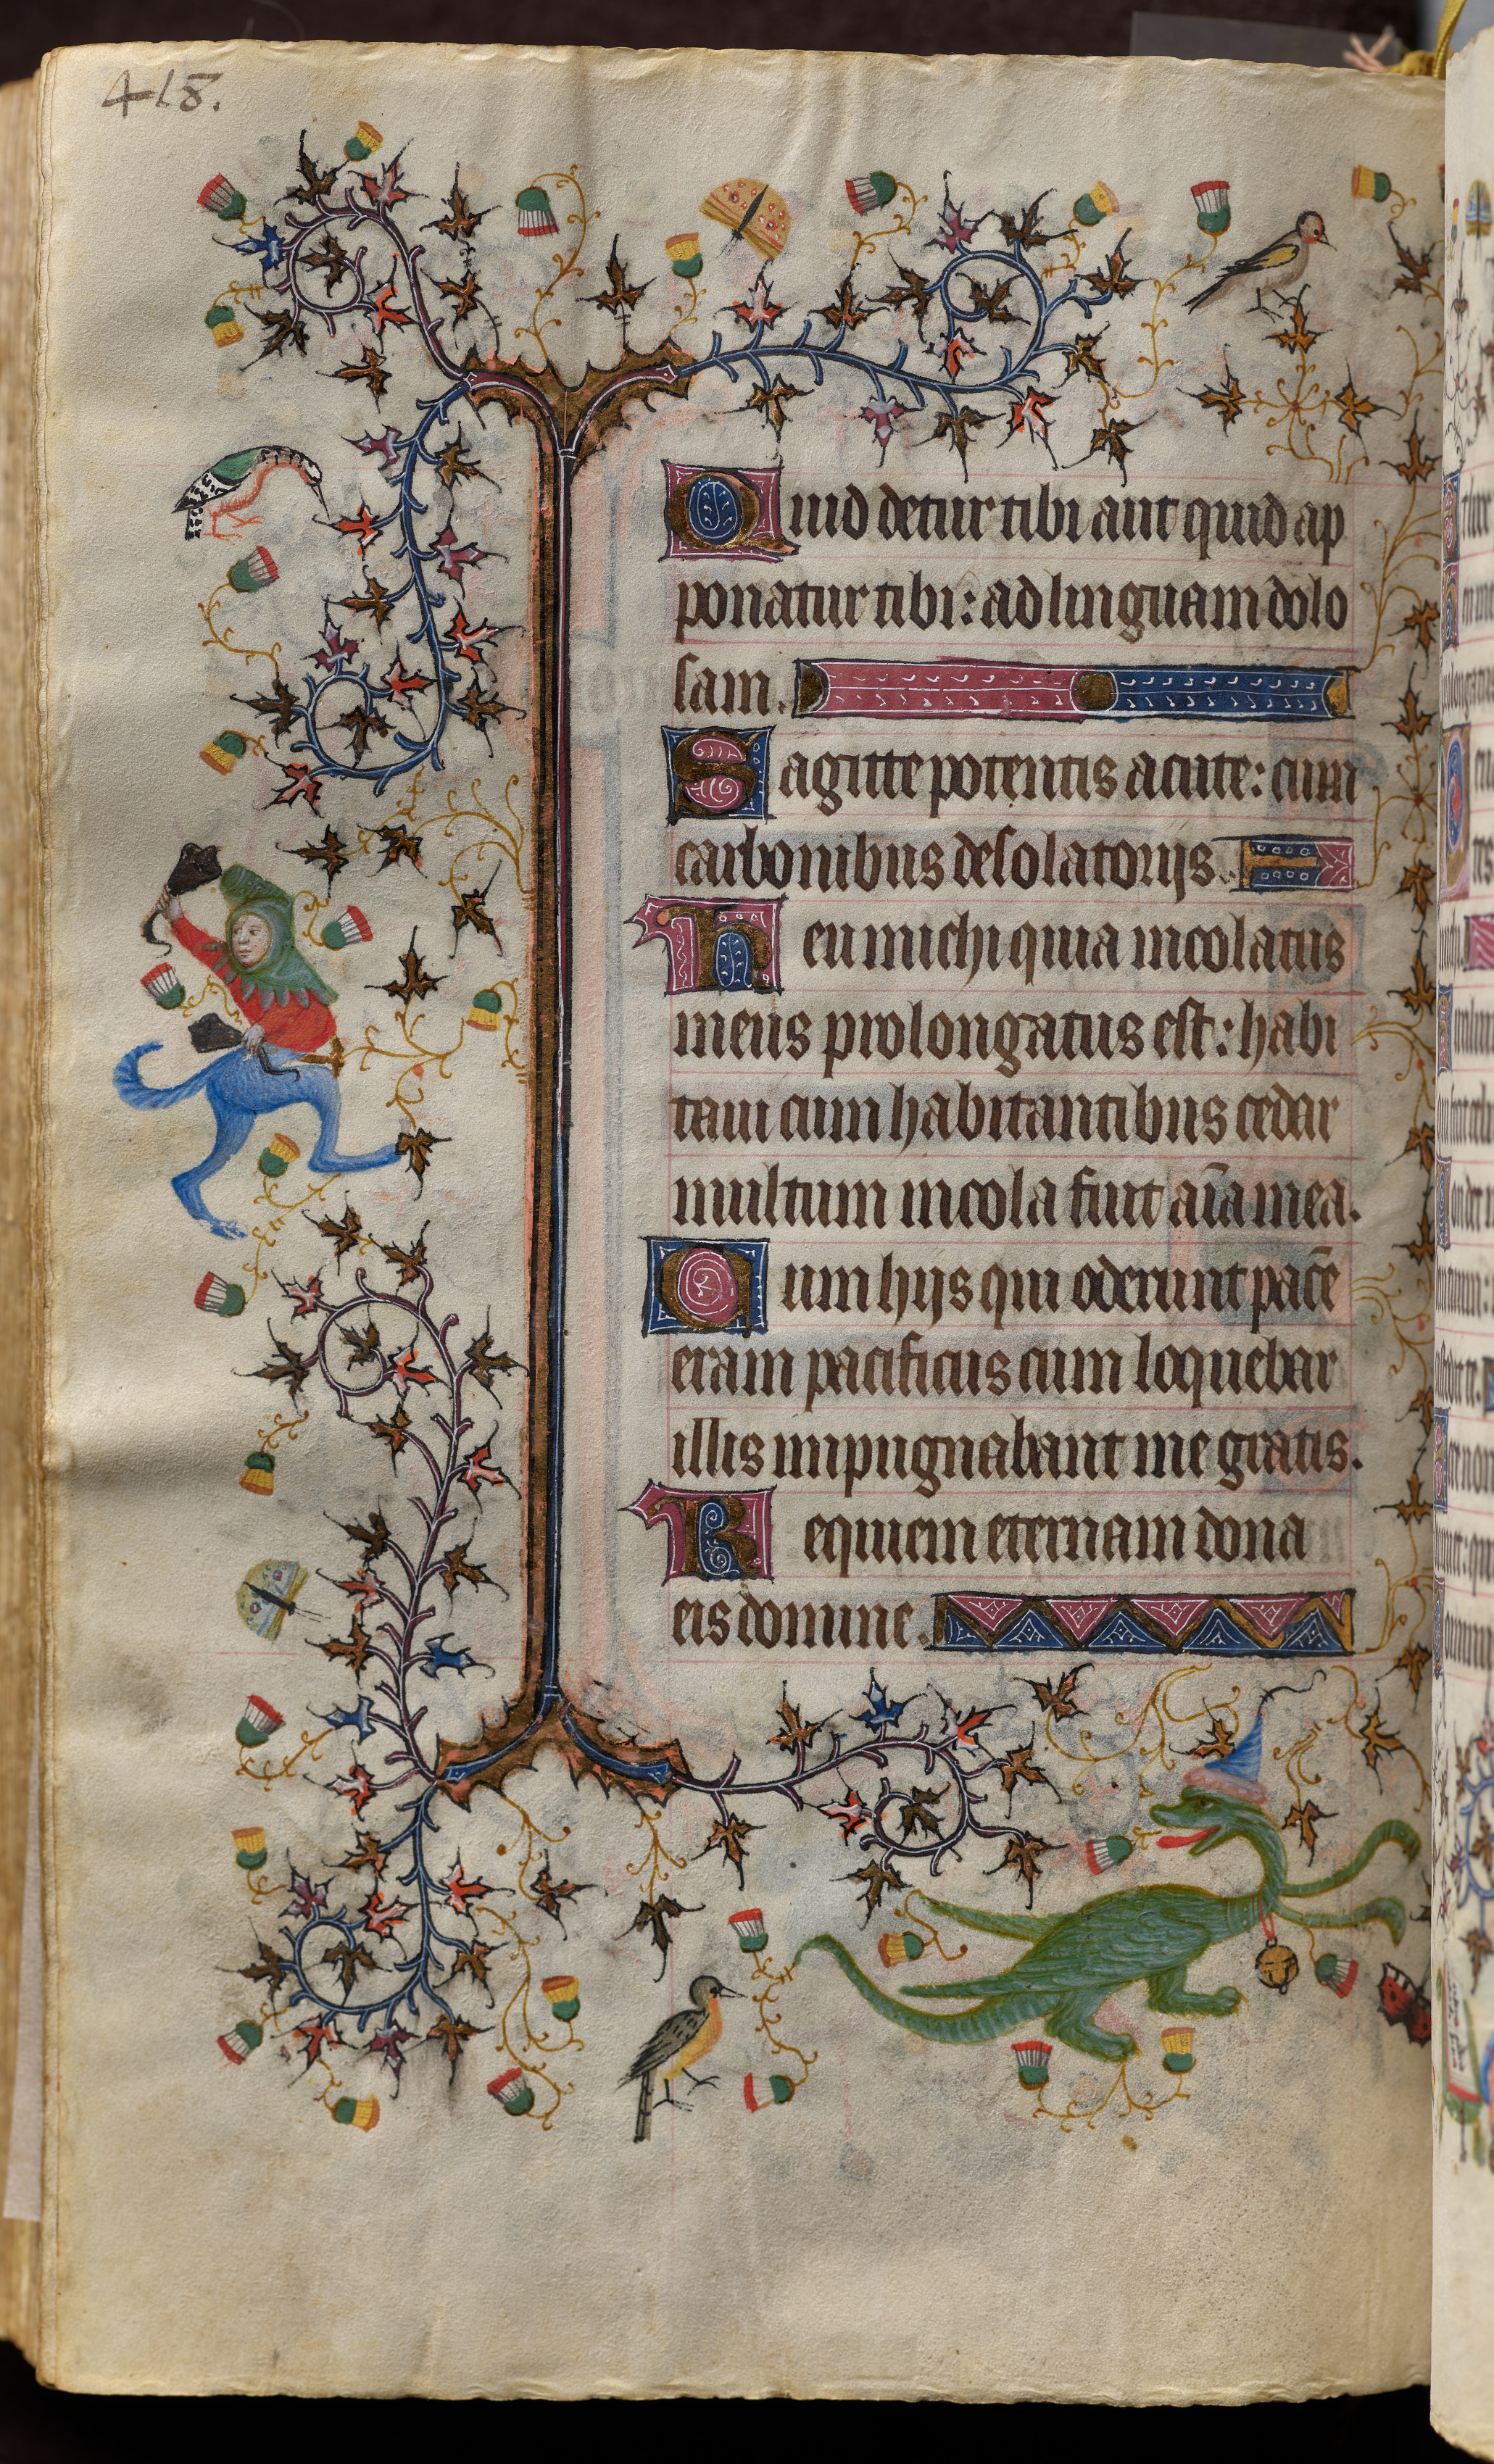 418.
Quid detur tibi aut quid ap
ponatur tibi: ad linguam dolo
sam.
Sagitte potentis acute: cum
carbonibus desolatorijs.
Heu michi quia incolatus
meus prolongatus est: habi
taui cum habitantibus cedar
multum incola fuit aīa mea.
Cum hijs qui oderunt pacē
eram pacificus cum loquebar
illis inpugnabant me gratis.
Requiem eternam dona
eis domine.